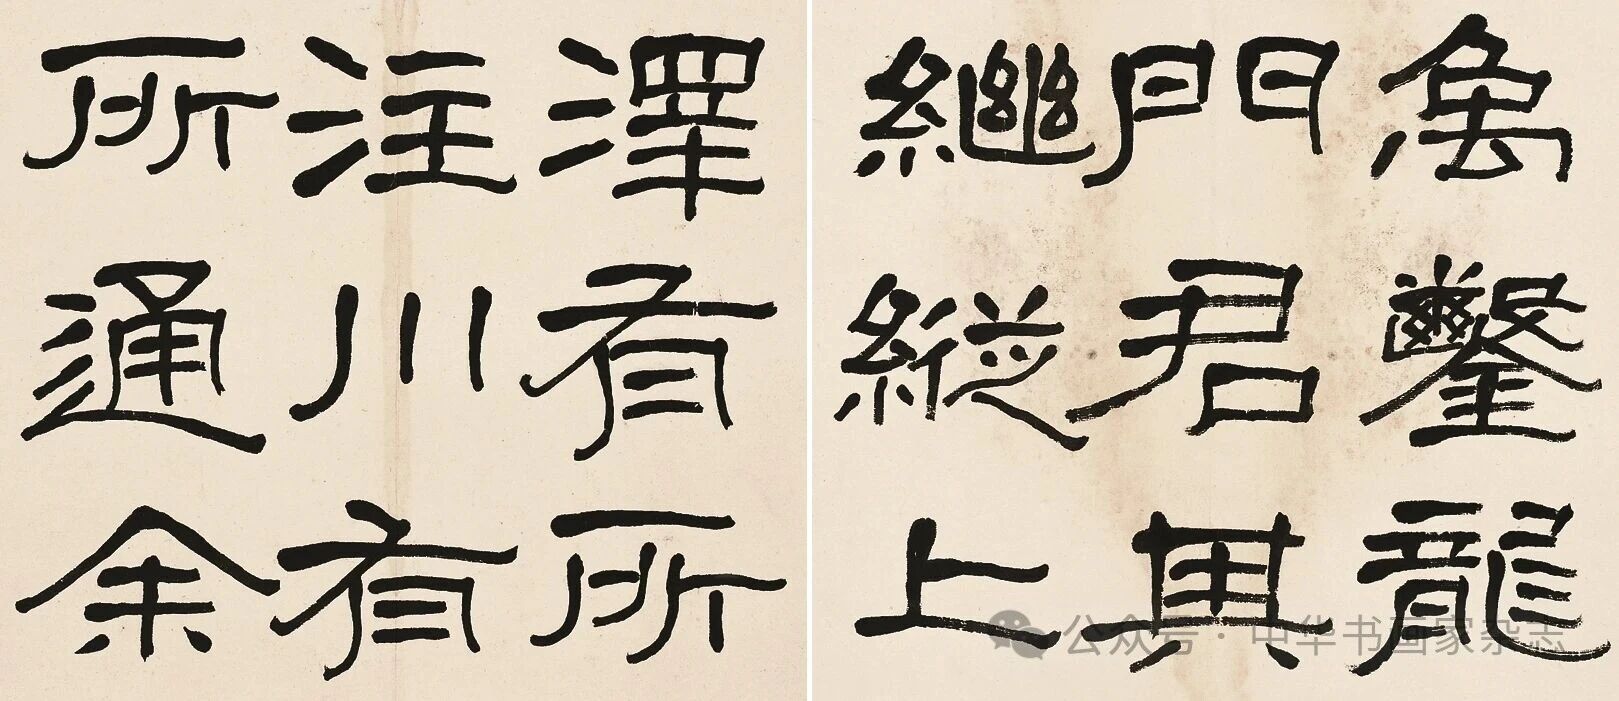 澤有所
注川有
所通余
禹鑿龍
門君其
繼縱上
公众号·中华书画家杂志